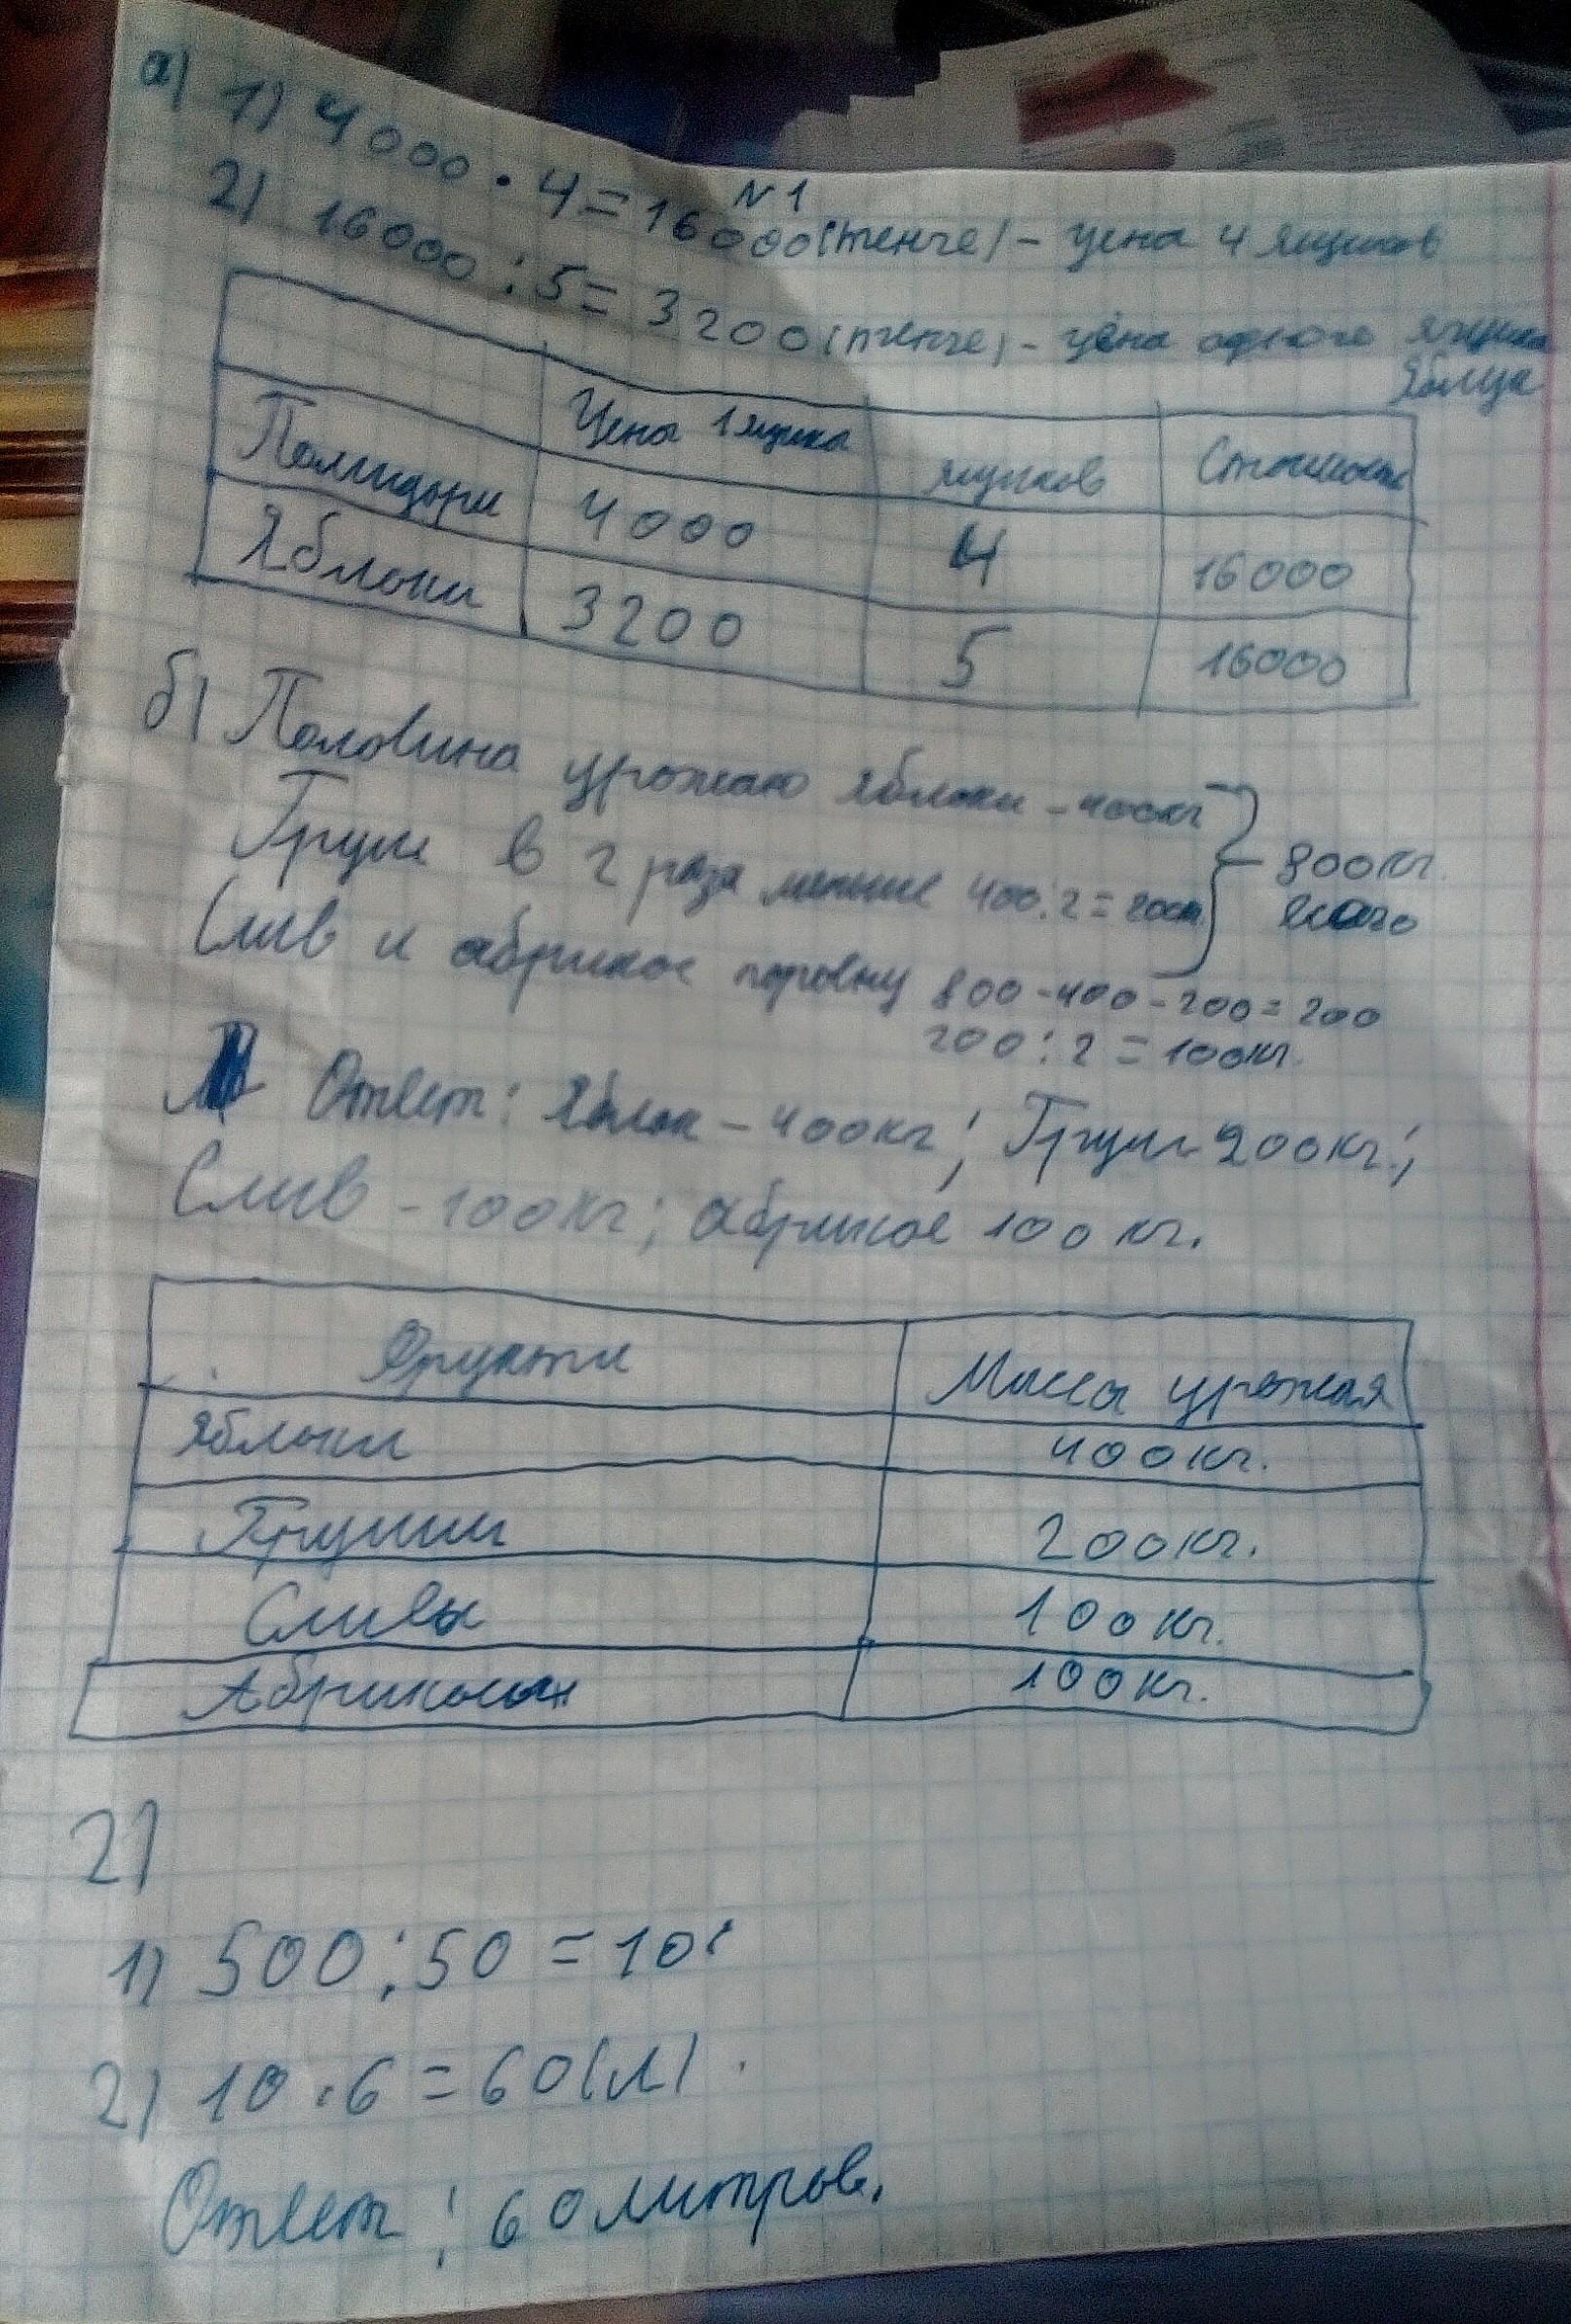 №1
а) 1) 4000 · 4 = 16000 (тенге) – цена 4 ящиков
2) 16000 : 5 = 3200 (тенге) – цена одного ящика
Цена 1 ящика ящиков Стоимость
Помидоры 4000 4 16000
Яблоки 3200 5 16000
б) Половина урожаю яблоки – 400кг
Груш в 2 раза меньше 400 : 2 = 200кг
800кг.
всего
Слив и абрикос поровну 800 - 400 - 200 = 200
200 : 2 = 100кг.
Ответ: Яблок – 400кг; Груш 200кг.;
Слив – 100кг; абрикос 100 кг.
Фрукты Масса урожая
Яблоки 400кг.
Груши 200кг.
Сливы 100кг.
Абрикосы 100кг.
2)
1) 500 : 50 = 10
2) 10 · 6 = 60(л)
Ответ: 60 литров.